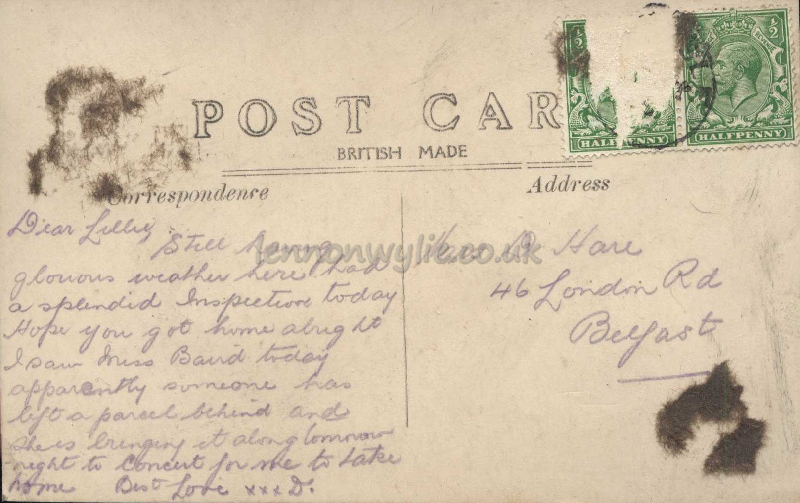 POST CAR
BRITISH MADE
Correspondence
Address
½
½
HALFPENNY
HALFPENNY
lennonwylie.co.uk
Dear Lilly
Still having
glorious weather here I had
a splendid Inspection today
Hope you got home alright
I saw Miss Baird today
apparently someone has
left a parcel behind and
she is bringing it along tomorrow
night to Concert for me to take
home Best Love xxx D.
Hare
46 London Rd
Belfast